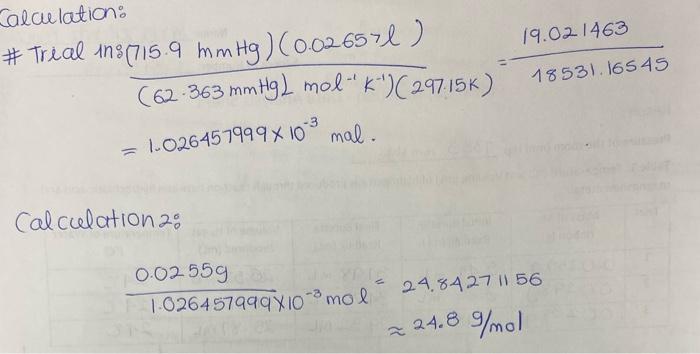 Calculation:
# Trial 1n: (715.9 mmHg)(0.02657l) / (62.363 mmHg L mol⁻¹ K⁻¹)(297.15K) = 19.021463 / 18531.16545
= 1.026457999 × 10⁻³ mol.
Calculation 2:
0.0255g / 1.026457999 × 10⁻³ mol = 24.84271156
≈ 24.8 g/mol